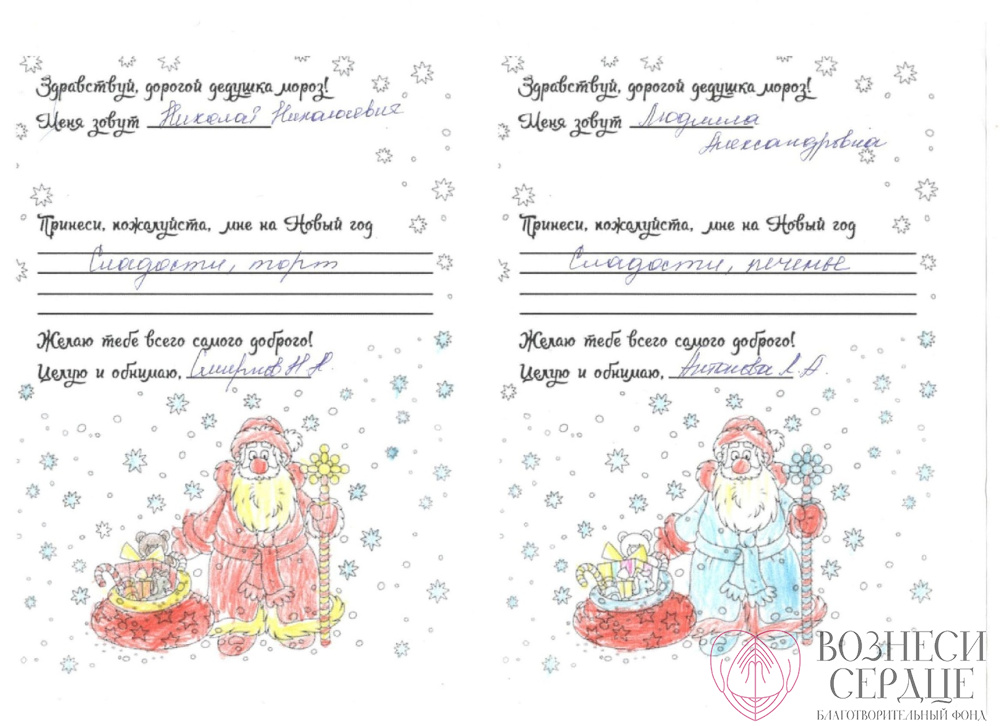 Здравствуй, дорогой дедушка мороз!
Меня зовут Николай Николаевич
Принеси, пожалуйста, мне на Новый год
Сладости, торт
Желаю тебе всего самого доброго!
Целую и обнимаю, Смирнов Н Н.
Здравствуй, дорогой дедушка мороз!
Меня зовут Людмила
Александровна
Принеси, пожалуйста, мне на Новый год
Сладости, печенье
Желаю тебе всего самого доброго!
Целую и обнимаю, Антонова Л. А.
ВОЗНЕСИ
СЕРДЦЕ
БЛАГОТВОРИТЕЛЬНЫЙ ФОНД